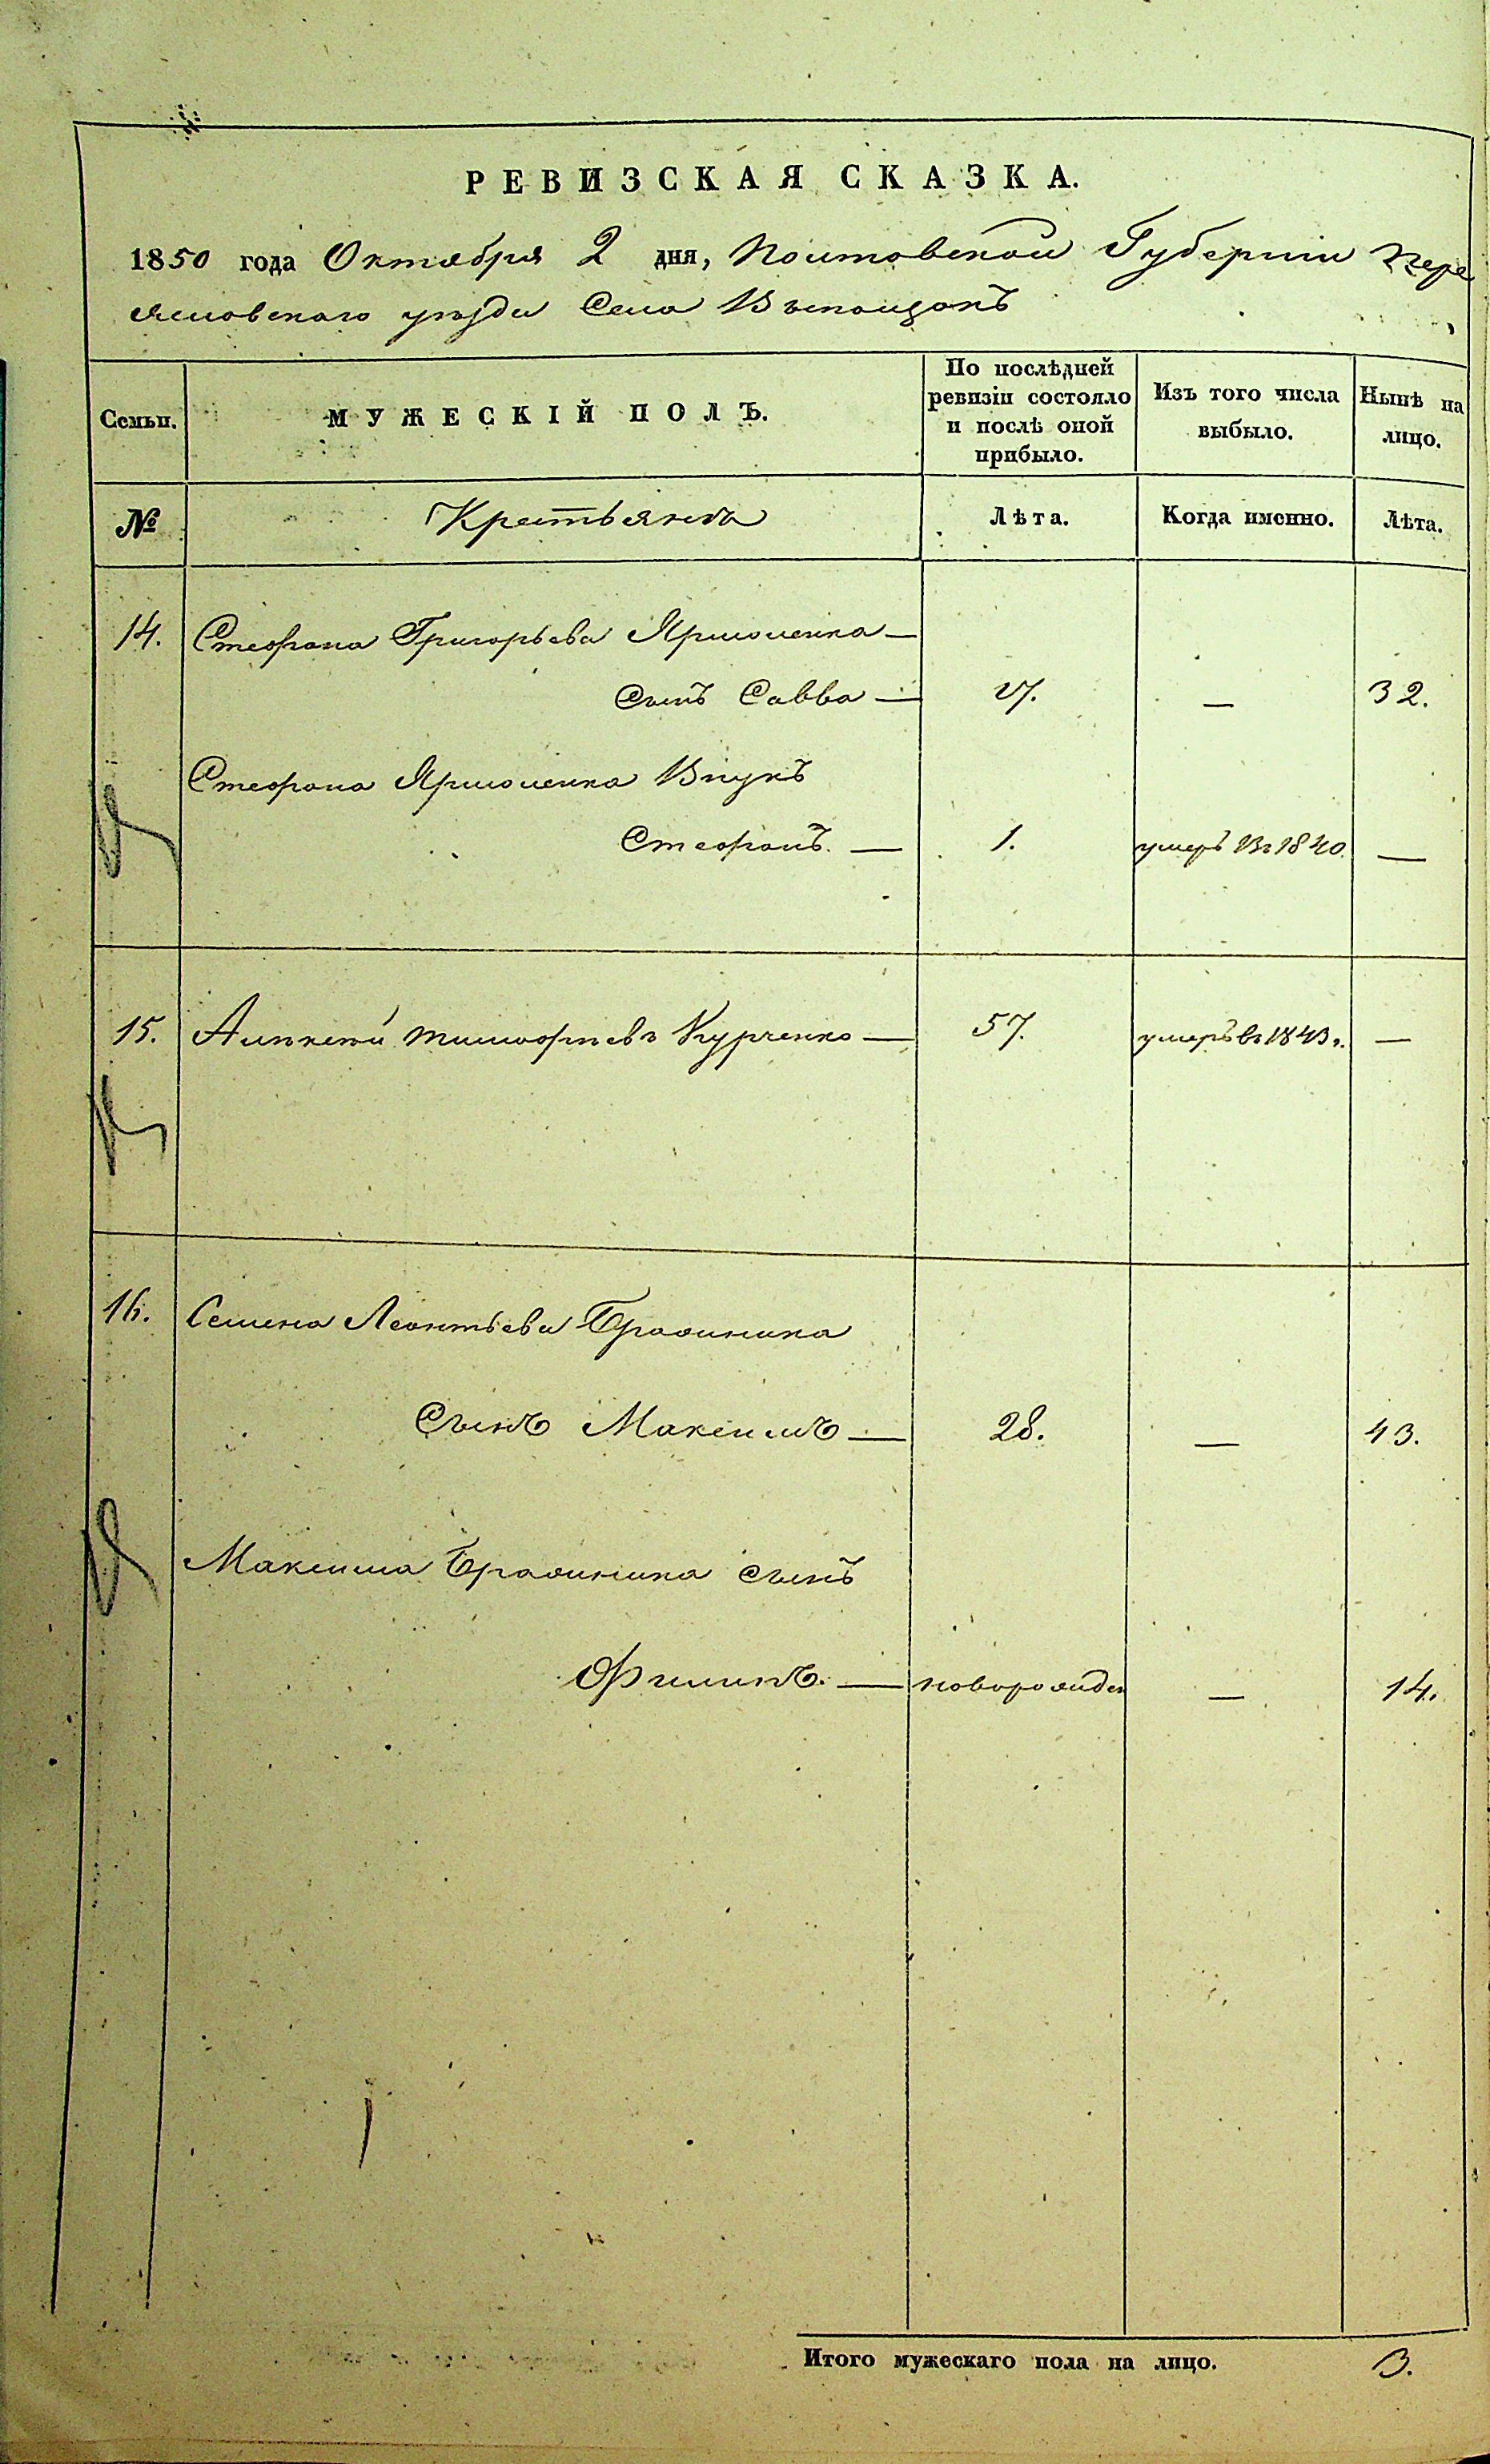 РЕВИЗСКАЯ СКАЗКА.
1850 года Октября 2 дня, Полтавской Губернии Пере
яславскаго уѣзда Села
Семьи. МУЖЕСКІЙ ПОЛЪ. По послѣдней ревизіи состояло и послѣ оной прибыло. Изъ того числа выбыло. Нынѣ на лицо.
№ Крестьянъ Лѣта. Когда именно. Лѣта.
14. Стефана Григорьева Ярмоленка —
Сынъ Савва — 17. — 32.
Стефана Ярмоленка Внукъ
Стефанъ. — 1. умеръ въ 1840 —
15. Алексѣй Тимофѣевъ Курченко — 57. умеръ въ 1843 г. —
16. Семена Леонтьева Бражника
Сынъ Максимъ — 28. — 43.
Максима Бражника сынъ
Филипъ. — новорожден — 14.
Итого мужескаго пола на лицо. 3.